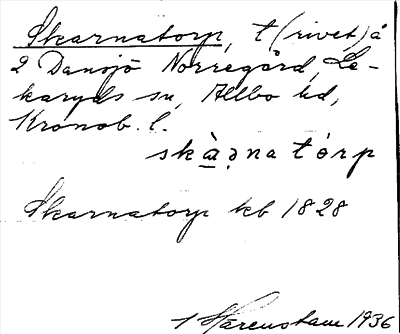 Skarnatorp, t (rivet) å
2 Dansjö Norregård, Le-
karyds sn, Allbo hd,
Kronob. l.
skà̠ạna tórp
Skarnatorp kb 1828
1 Härenstam 1936